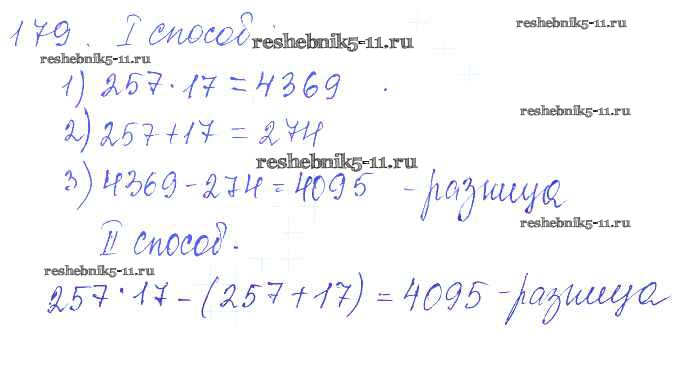 reshebnik5-11.ru
179. I способ. reshebnik5-11.ru
reshebnik5-11.ru
1) 257·17=4369
reshebnik5-11.ru
2) 257+17=274
reshebnik5-11.ru
3) 4369-274=4095 -разница
reshebnik5-11.ru
II способ.
reshebnik5-11.ru
257·17-(257+17)=4095-разница